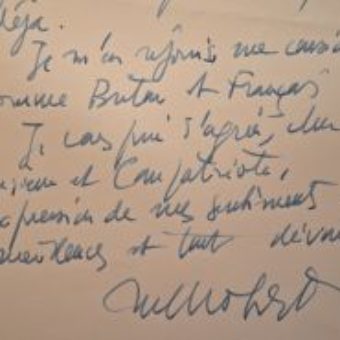 déja.
Je m'en réjouis me consi
omme Breton et Français
Je vous prie d'agréer, cher
et Compatriote,
xpression de mes sentiments
et tout dévou